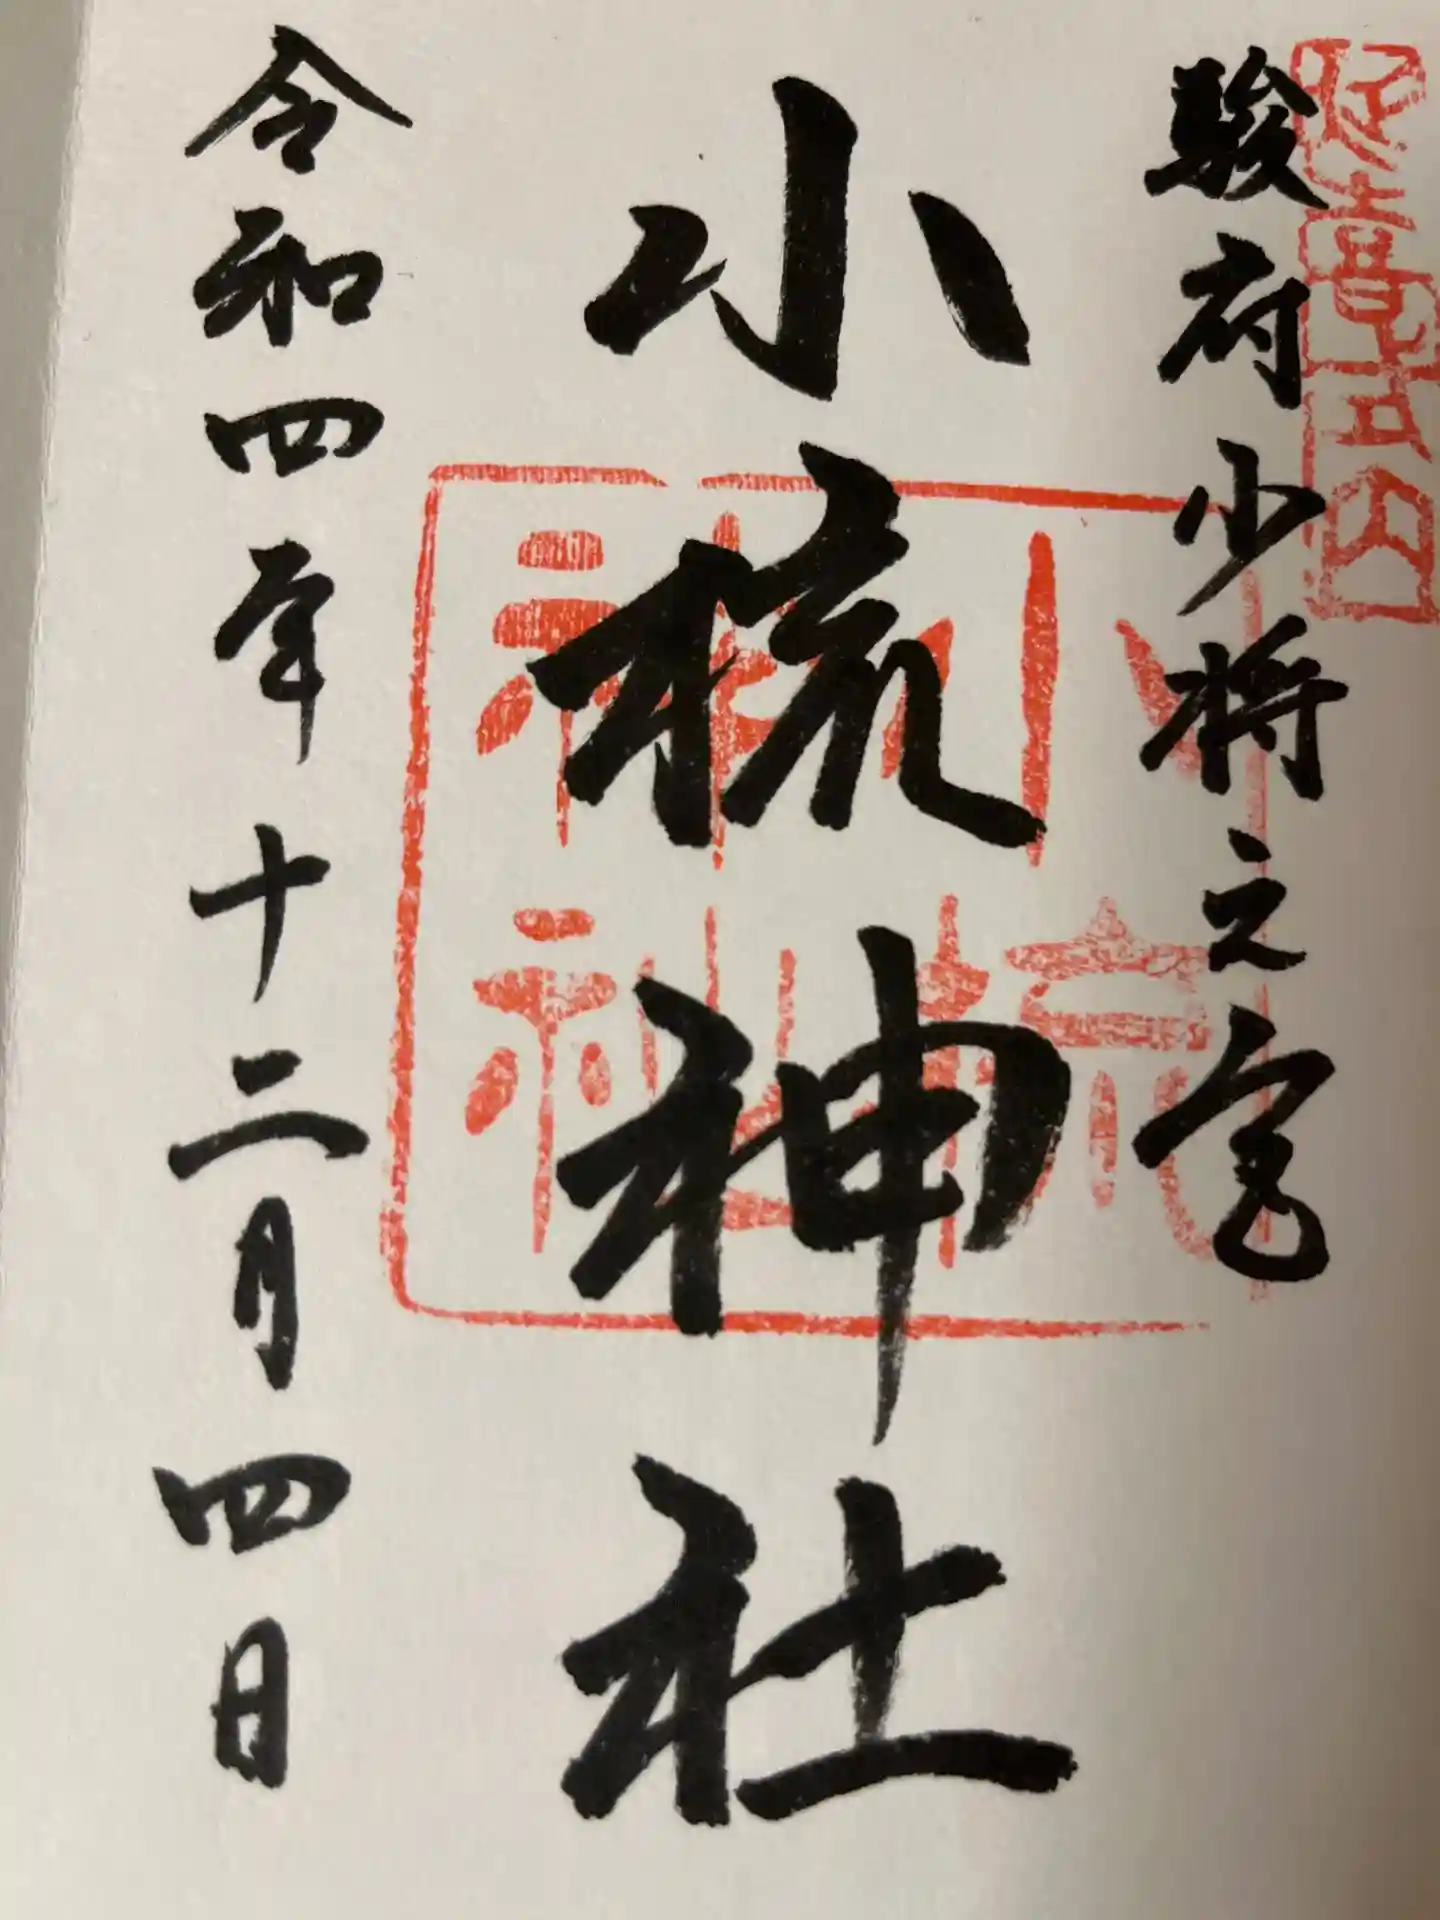 駿府少将之宮
小梳神社
小梳神社
令和四年十二月四日